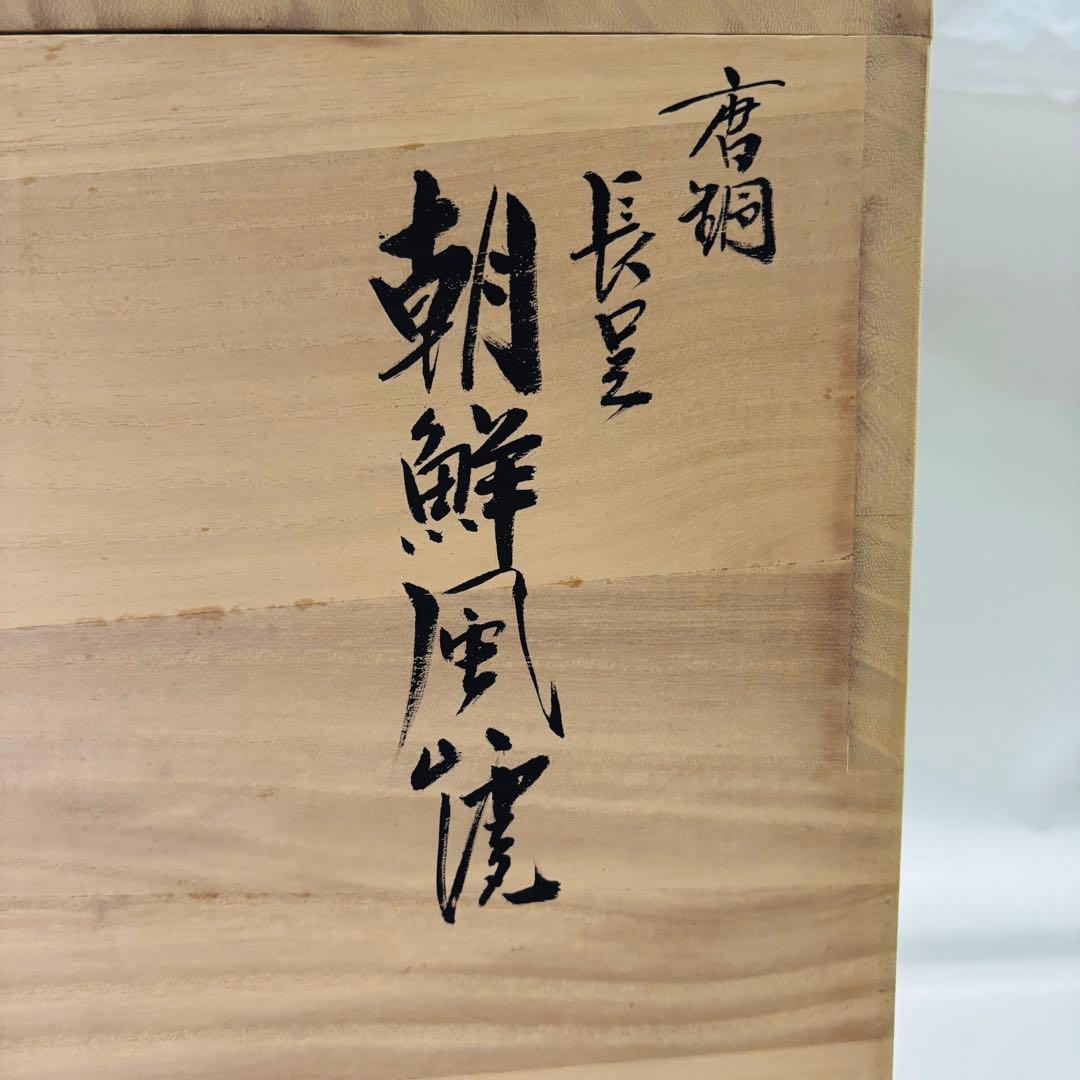 唐銅
長足
朝鮮風爐